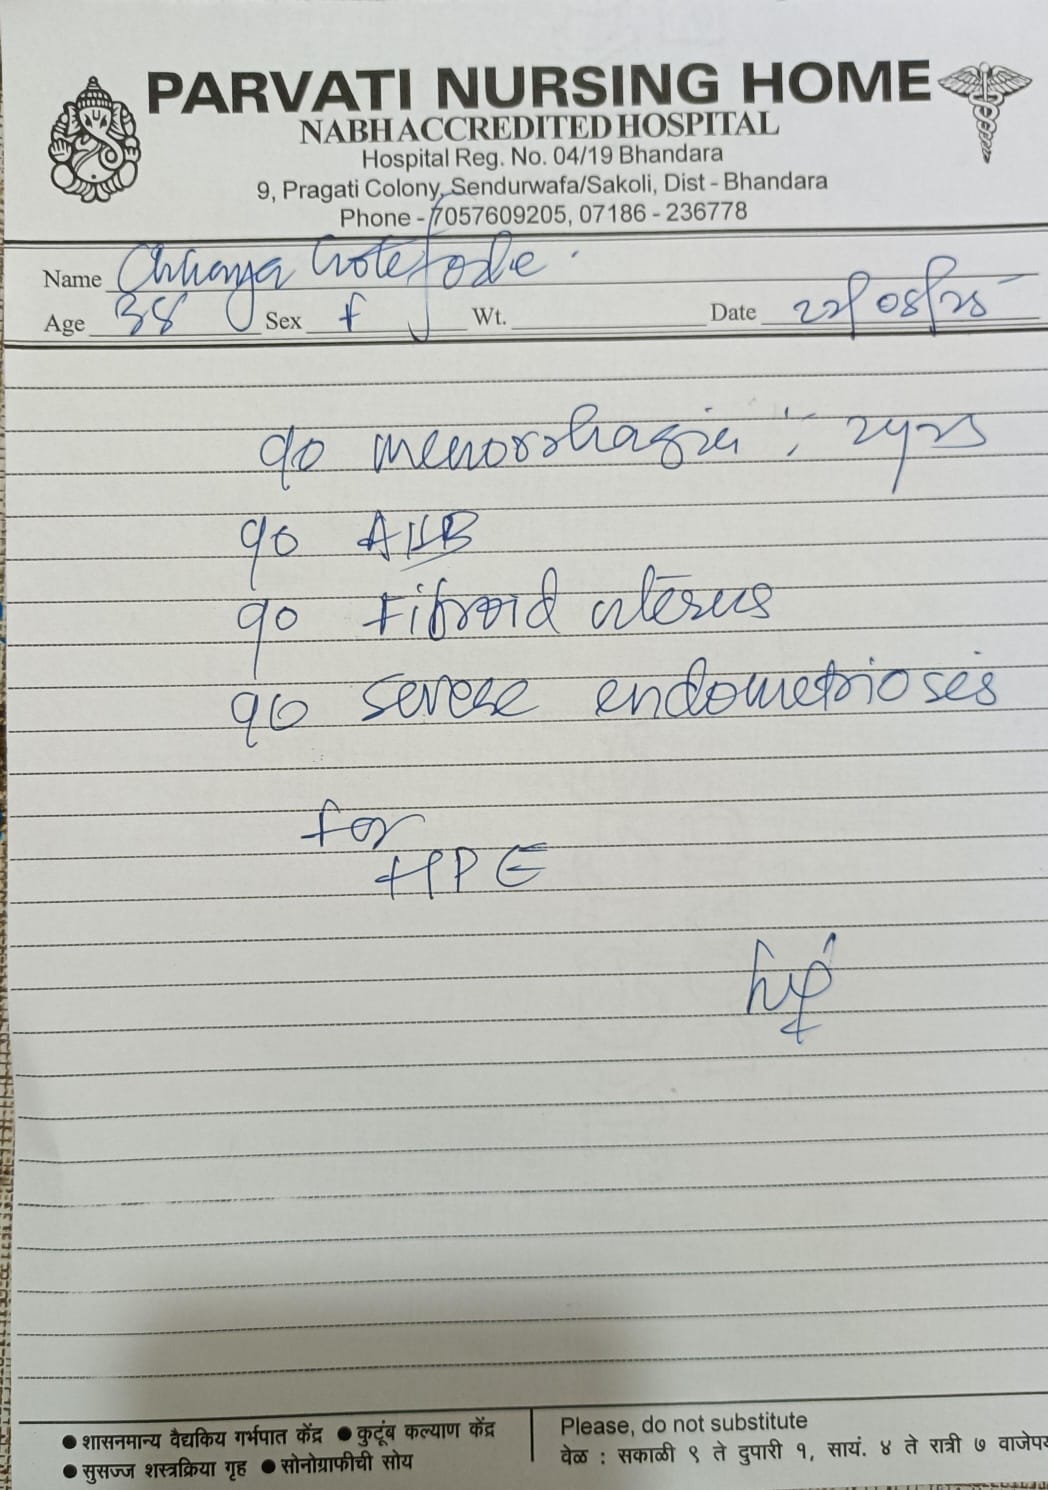 PARVATI NURSING HOME
NABH ACCREDITED HOSPITAL
Hospital Reg. No. 04/19 Bhandara
9, Pragati Colony, Sendurwafa/Sakoli, Dist - Bhandara
Phone - 7057609205, 07186 - 236778
Name Chhaya
Age 38 Sex f Wt. Date 22/08/25
c/o menorrhagia : 2yrs
c/o AUB
c/o Fibroid uterus
c/o severe endometriosis
for
HPE
● शासनमान्य वैद्यकिय गर्भपात केंद्र ● कुटूंब कल्याण केंद्र
● सुसज्ज शस्त्रक्रिया गृह ● सोनोग्राफीची सोय
Please, do not substitute
वेळ : सकाळी ९ ते दुपारी १, सायं. ४ ते रात्री ७ वाजेप